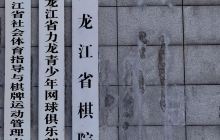 龙江省棋院
龙江省力龙青少年网球俱乐部
江省社会体育指导与棋牌运动管理